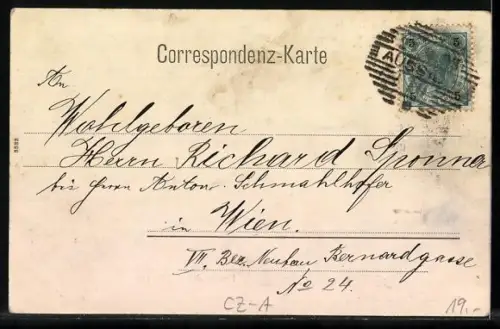 Correspondenz-Karte
An
Wohlgeboren
Herrn Richard Sponner
bei Herrn Anton Schmahlhofer
in Wien.
VII. Bez. Neubau Bernardgasse
No 24.
CZ-A
19.-